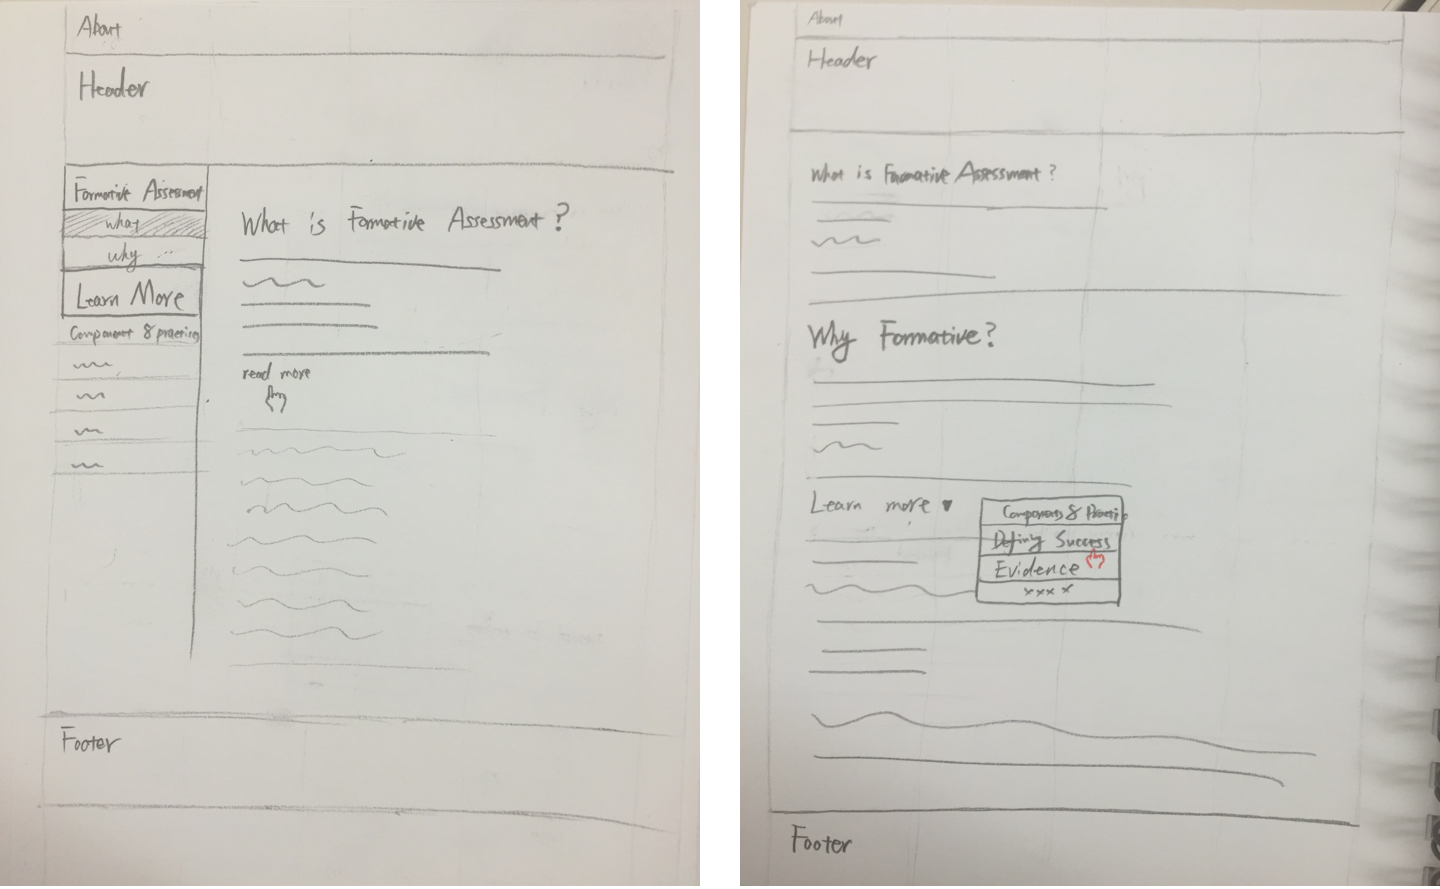 About
Header
Formative Assessment
what
why ...
Learn More
Component & practices
What is Formative Assessment?
read more
Footer
About
Header
What is Formative Assessment?
Why Formative?
Learn more ▼
Components & Practi
Defining Success
Evidence
xxxx
Footer